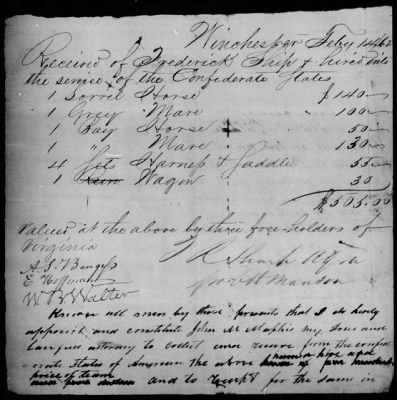 Winchester Feby 14/62
Received of Frederick Ship & hired into
the service of the Confederate States
1 Sorrel Horse $140—
1 Grey Mare 100—
1 Bay Horse 50—
1 " Mare 130—
4 Sets Harness & Saddle 55—
1 Wagon 30
$505.00
Valued at the above by three free holders of
Virginia
A. S. Burgess
E Hoffman
W. B. Walter
Know all men by these presents that I do hereby
appoint and constitute John M Maphis my true and
lawful attorney to collect and receive from the confed
erate States of American the above hire and
price of team
and to receipt for the same in